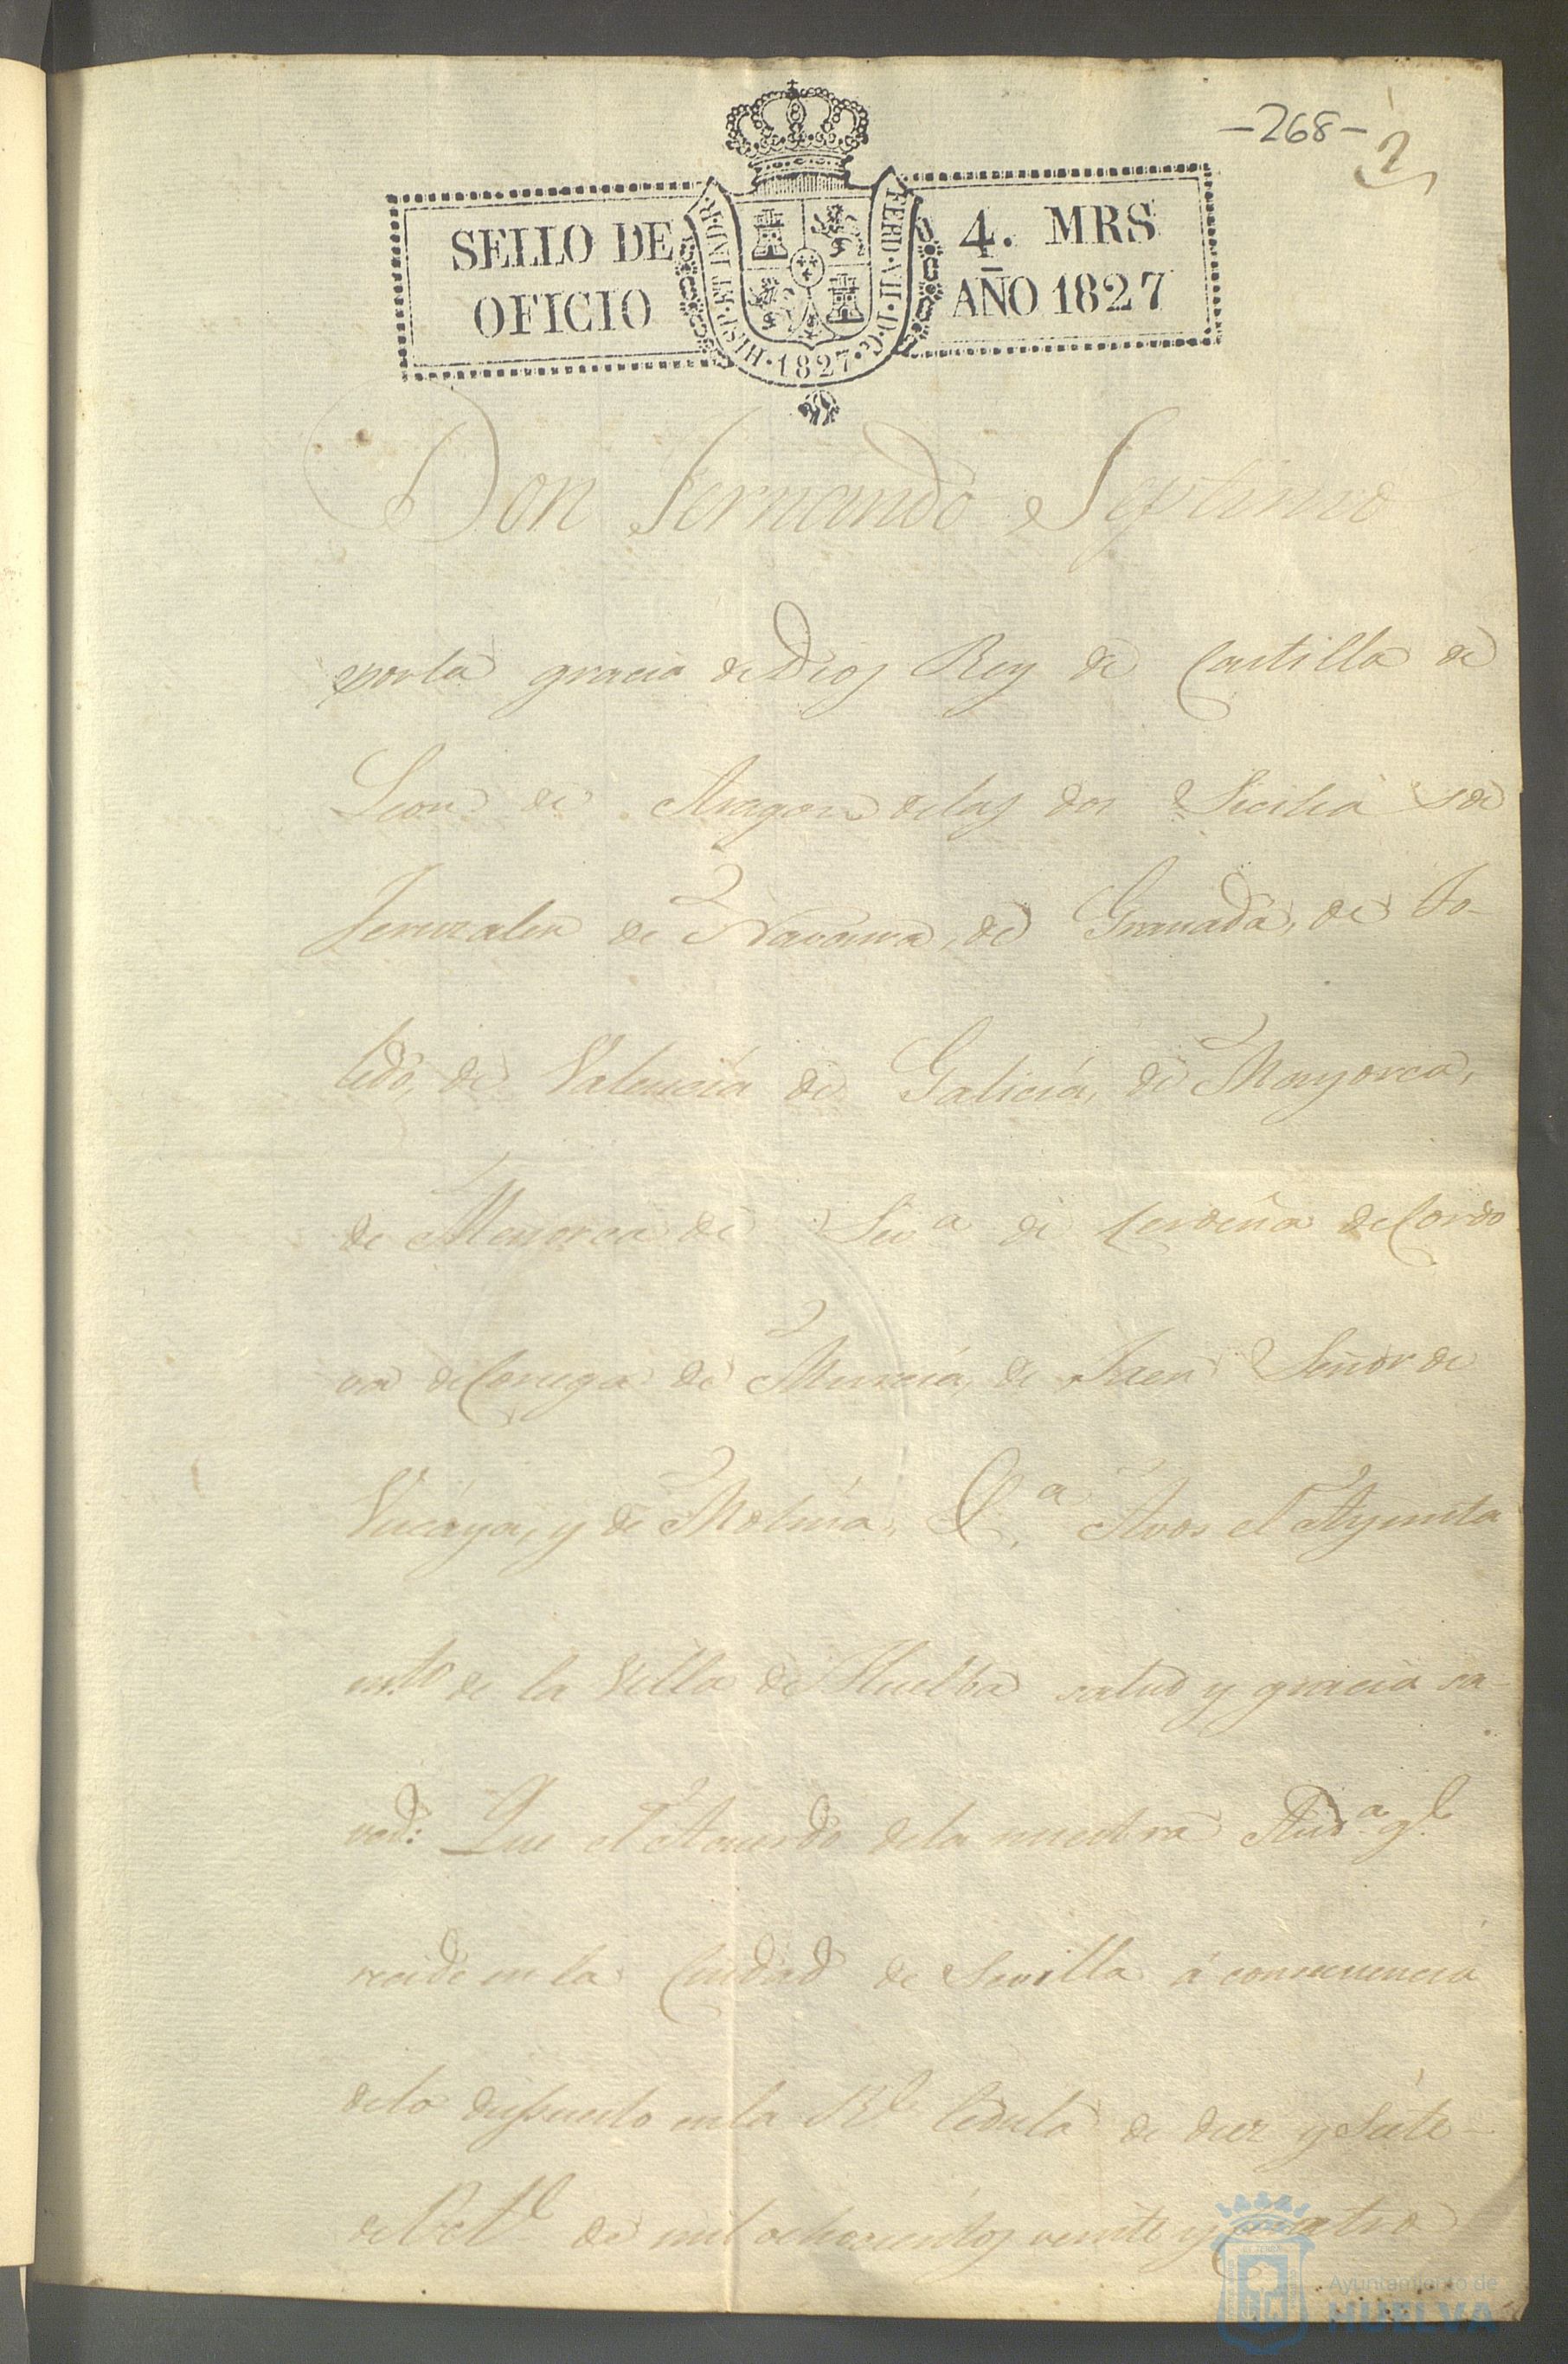 -268-
2
SELLO DE
OFICIO
HISP. ET IND. R.
FERD. VII. D. G.
·1827·
4. MRS
AÑO 1827
Don Fernando Septimo
por la gracia de Dios Rey de Castilla de
Leon de Aragon de las dos Sicilia s de
Jeruzalen de Navarra, de Granada, de To-
ledo, de Valencia de Galicia, de Mayorca,
de Menorca de Sev.a de Cerdeña de Cordo
va de Corcega de Murcia, de Jaen Señor de
Vizcaya, y de Molina, &.a A vos el Ayunta
m.to de la Villa de Huelba salud y gracia sa-
ved: Que el Acuerdo de la nuestra Aud.a q.e
recide en la Ciudad de Sevilla á consecuencia
de lo dispuesto en la R.l Cedula de diez y siete
de Oct.e de mil ochocientos veinte y cuatro
Ayuntamiento de
HUELVA